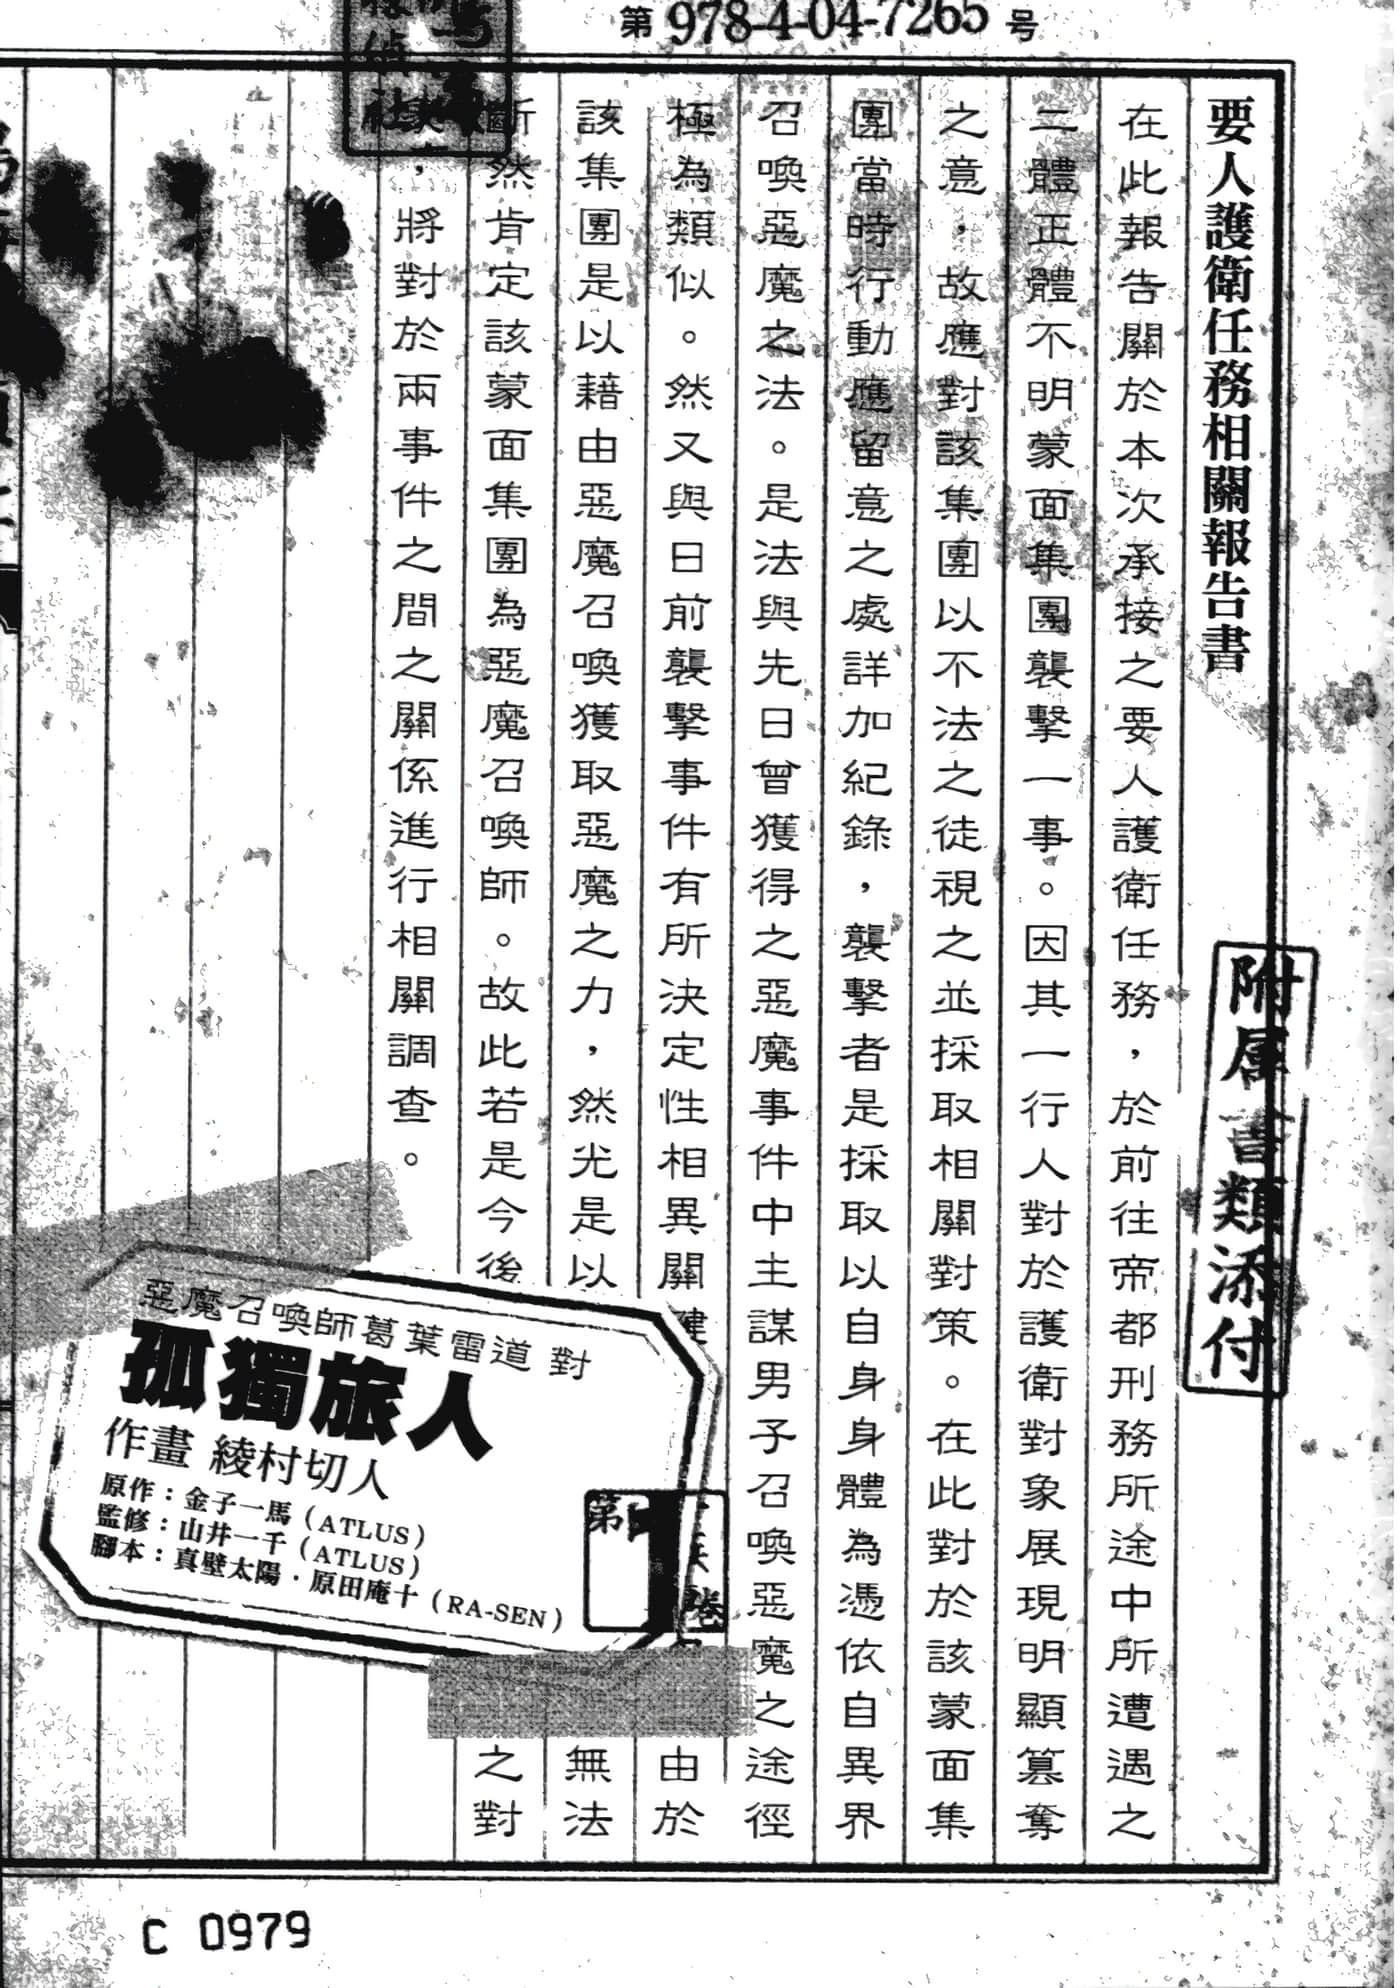 第978-4-04-7265号
要人護衛任務相關報告書
在此報告關於本次承接之要人護衛任務，於前往帝都刑務所途中所遭遇之
二體正體不明蒙面集團襲擊一事。因其一行人對於護衛對象展現明顯篡奪
之意，故應對該集團以不法之徒視之並採取相關對策。在此對於該蒙面集
團當時行動應留意之處詳加紀錄，襲擊者是採取以自身身體為憑依自異界
召喚惡魔之法。是法與先日曾獲得之惡魔事件中主謀男子召喚惡魔之途徑
極為類似。然又與日前襲擊事件有所決定性相異關鍵
由於
該集團是以藉由惡魔召喚獲取惡魔之力，然光是以
無法
斷然肯定該蒙面集團為惡魔召喚師。故此若是今後
之對
，將對於兩事件之間之關係進行相關調查。
附属書類添付
惡魔召喚師葛葉雷道 對
孤獨旅人
作畫 綾村切人
原作：金子一馬（ATLUS）
監修：山井一千（ATLUS）
腳本：真壁太陽・原田庵十（RA-SEN）
第
1
卷
C 0979